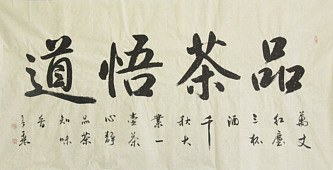 品茶悟道
萬丈
紅塵
三杯
酒
千
秋大
業一
壺茶
心靜
品茶
知味
香